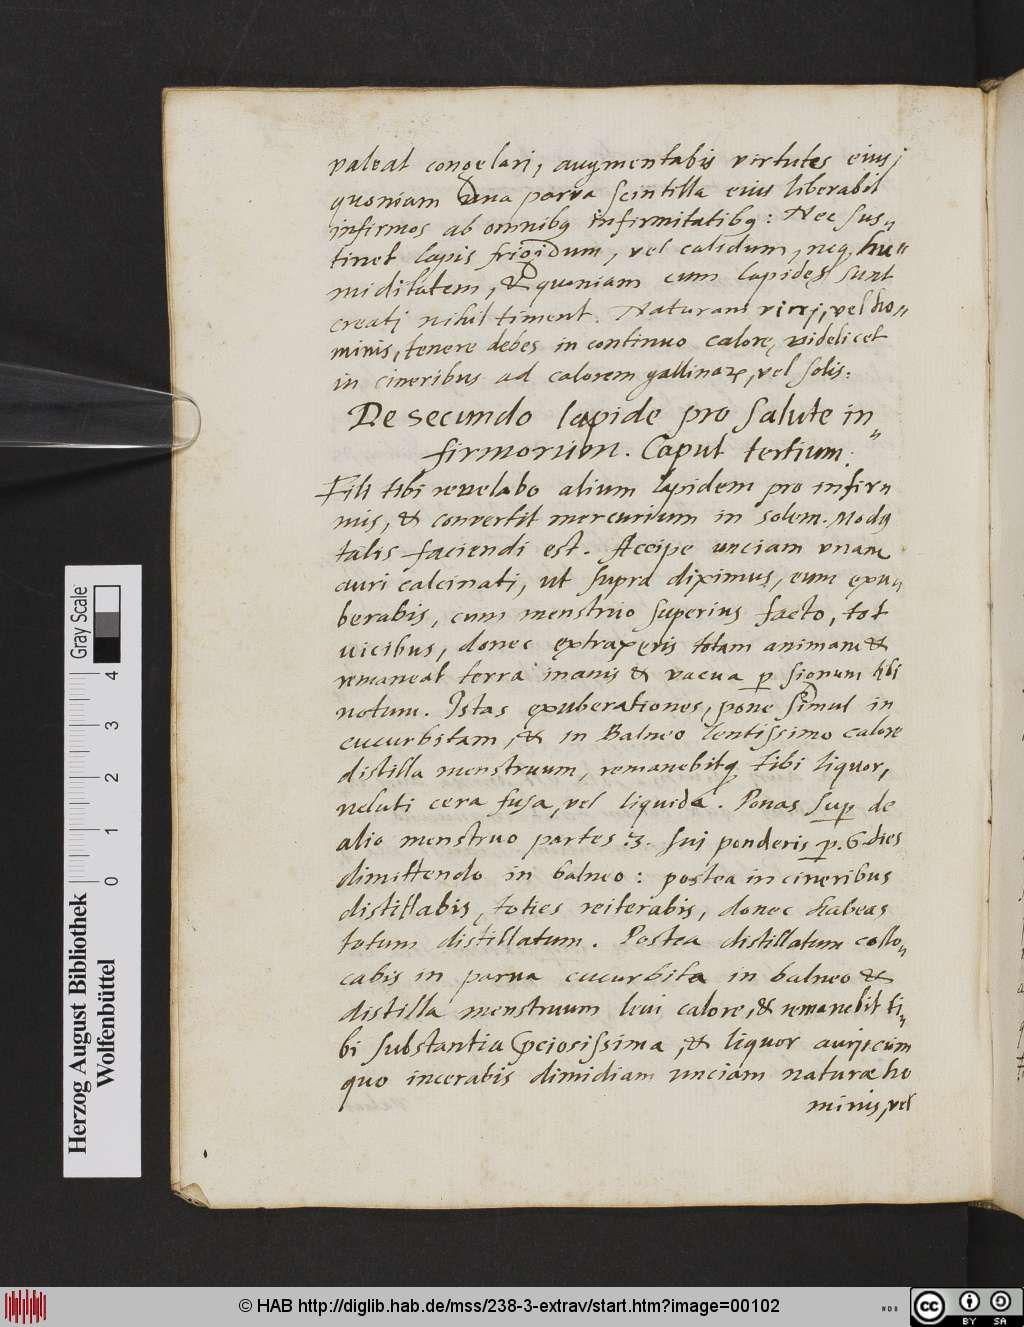 valeat congelari, augmentabis virtutes eius,
quoniam una parva scintilla eius liberabit
infirmos ab omnibꝫ infirmitatibꝫ: Nec sus-
tinet lapis frigidum, vel calidum, neqꝫ hu-
miditatem, & quoniam cum lapides sunt
creati nihil timent. Naturam vitri, vel ho-
minis, tenere debes in continuo calore, videlicet
in cineribus ad calorem gallinaꝝ, vel solis.
De secundo lapide pro salute in-
firmorum. Caput tertium.
Fili tibi revelabo alium lapidem pro infir-
mis, & convertit mercurium in solem. Modꝫ
talis faciendi est. Accipe unciam vnam
auri calcinati, ut supra diximus, eum exu-
berabis, cum menstruo superius facto, tot
vicibus, donec extraxeris totam animam &
remaneat terra inanis & vacua ꝑ signum tibi
notum. Istas exuberationes, pone simul in
cucurbitam, & in Balneo lentissimo calore
distilla menstruum, remanebitqꝫ tibi liquor,
veluti cera fusa, vel liquida. Ponas suꝑ de
alio menstruo partes .3. sui ponderis ꝑ .6. dies
dimittendo in balneo: postea in cineribus
distillabis, toties reiterabis, donec habeas
totum distillatum. Postea distillatum collo-
cabis in parva cucurbita in balneo &
distilla menstruum levi calore, & remanebit ti-
bi substantia p̄ciosissima, & liquor auri, cum
quo incerabis dimidiam unciam naturæ ho
minis, vel
Herzog August Bibliothek
Wolfenbüttel
0 1 2 3 4
Gray Scale
© HAB http://diglib.hab.de/mss/238-3-extrav/start.htm?image=00102
cc BY SA